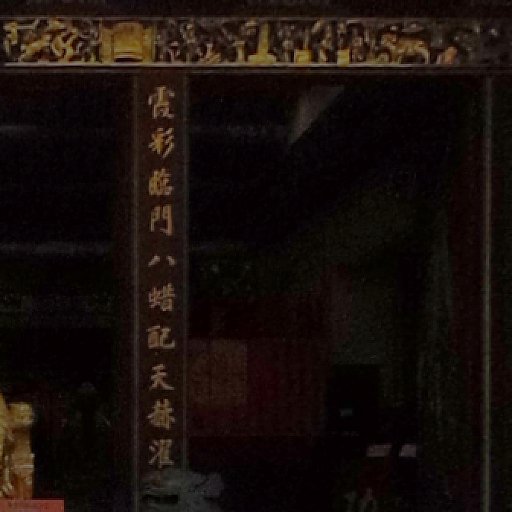 霞彩臨門八蜡配天赫濯